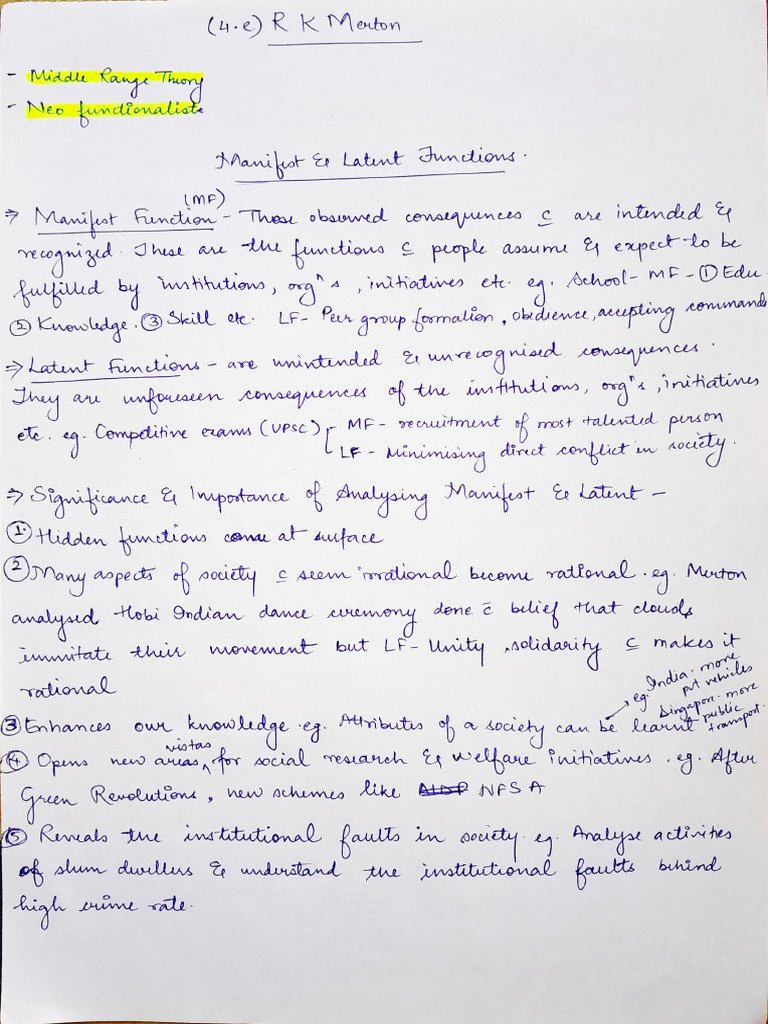 (4.e) R K Merton
- Middle Range Theory
- Neo functionalist
Manifest & Latent Functions.
(MF)
⇒ Manifest Function - Those observed consequences c are intended &
recognized. These are the functions c people assume & expect to be
fulfilled by institutions, orgⁿ's, initiatives etc. eg. School - MF - ① Edu
② Knowledge. ③ Skill etc. LF - Peer group formation, obedience, accepting commands
⇒ Latent Functions - are unintended & unrecognised consequences.
They are unforeseen consequences of the institutions, orgⁿ's, initiatives
etc. eg. Competitive exams (UPSC) - MF - recruitment of most talented person
LF - Minimising direct conflict in society.
⇒ Significance & Importance of Analysing Manifest & Latent -
①. Hidden functions come at surface
② Many aspects of society c seem irrational become rational. eg. Merton
analysed Hobi Indian dance ceremony done c̄ belief that clouds
immitate their movement but LF - Unity, solidarity c makes it
rational
③ Enhances our knowledge. eg. Attributes of a society can be learnt
eg. India - more
pvt vehicles
Singapor - more
public
transport.
④ Opens new areas vistas for social research & welfare initiatives. eg. After
Green Revolutions, new schemes like NFSA
⑤ Reveals the institutional faults in society. eg. Analyse activities
of slum dwellers & understand the institutional faults behind
high crime rate.